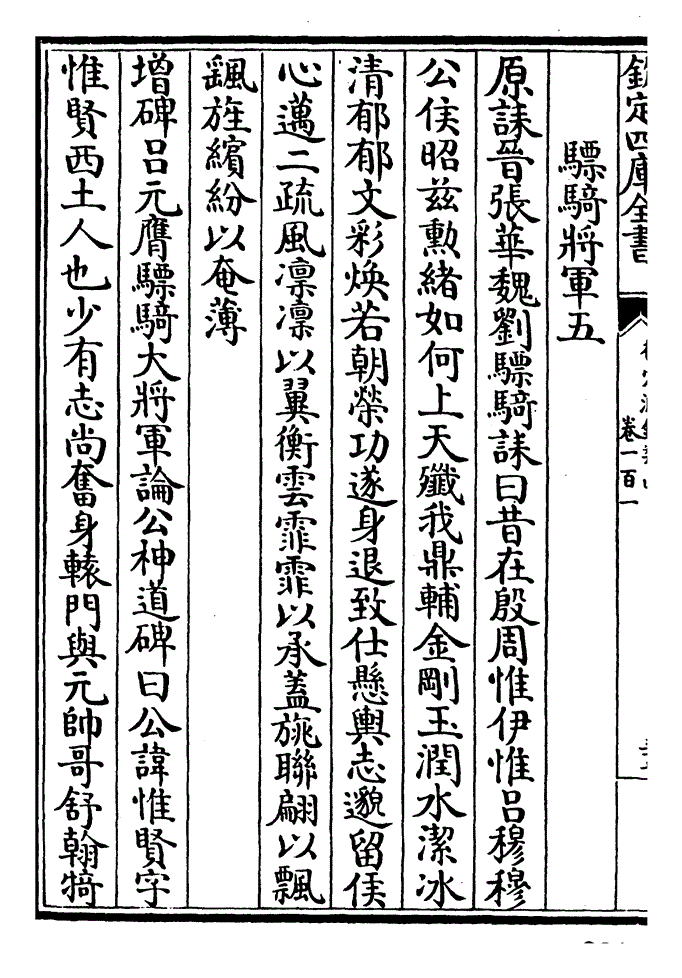 欽定四庫全書
卷一百一
驃騎將軍五
原誄晉張華魏劉驃騎誄曰昔在殷周惟伊惟呂穆穆
公侯昭兹勲緒如何上天殲我鼎輔金剛玉潤水潔冰
清郁郁文彩煥若朝榮功遂身退致仕懸輿志邈留侯
心邁二疏風凛凛以翼衡雲霏霏以承蓋旐聯翩以飄
颻旌繽紛以奄薄
增碑呂元膺驃騎大將軍論公神道碑曰公諱惟賢字
惟賢西土人也少有志尚奮身轅門與元帥哥舒翰犄